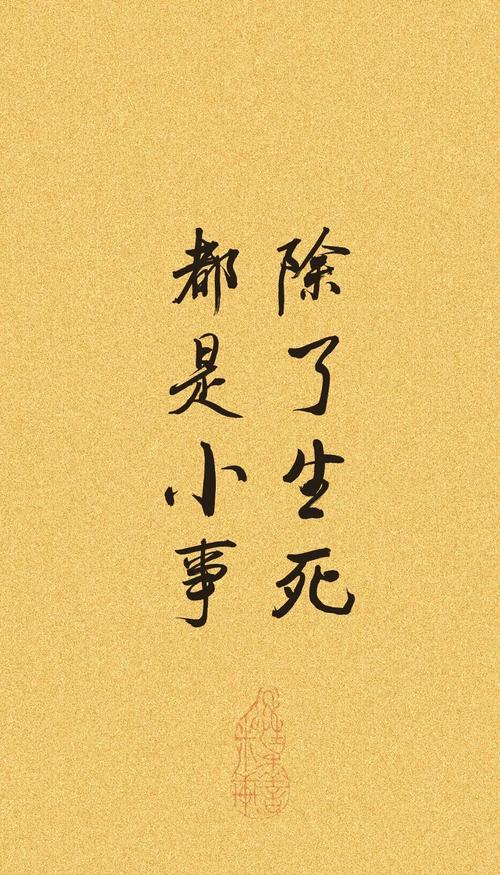 除了生死
都是小事